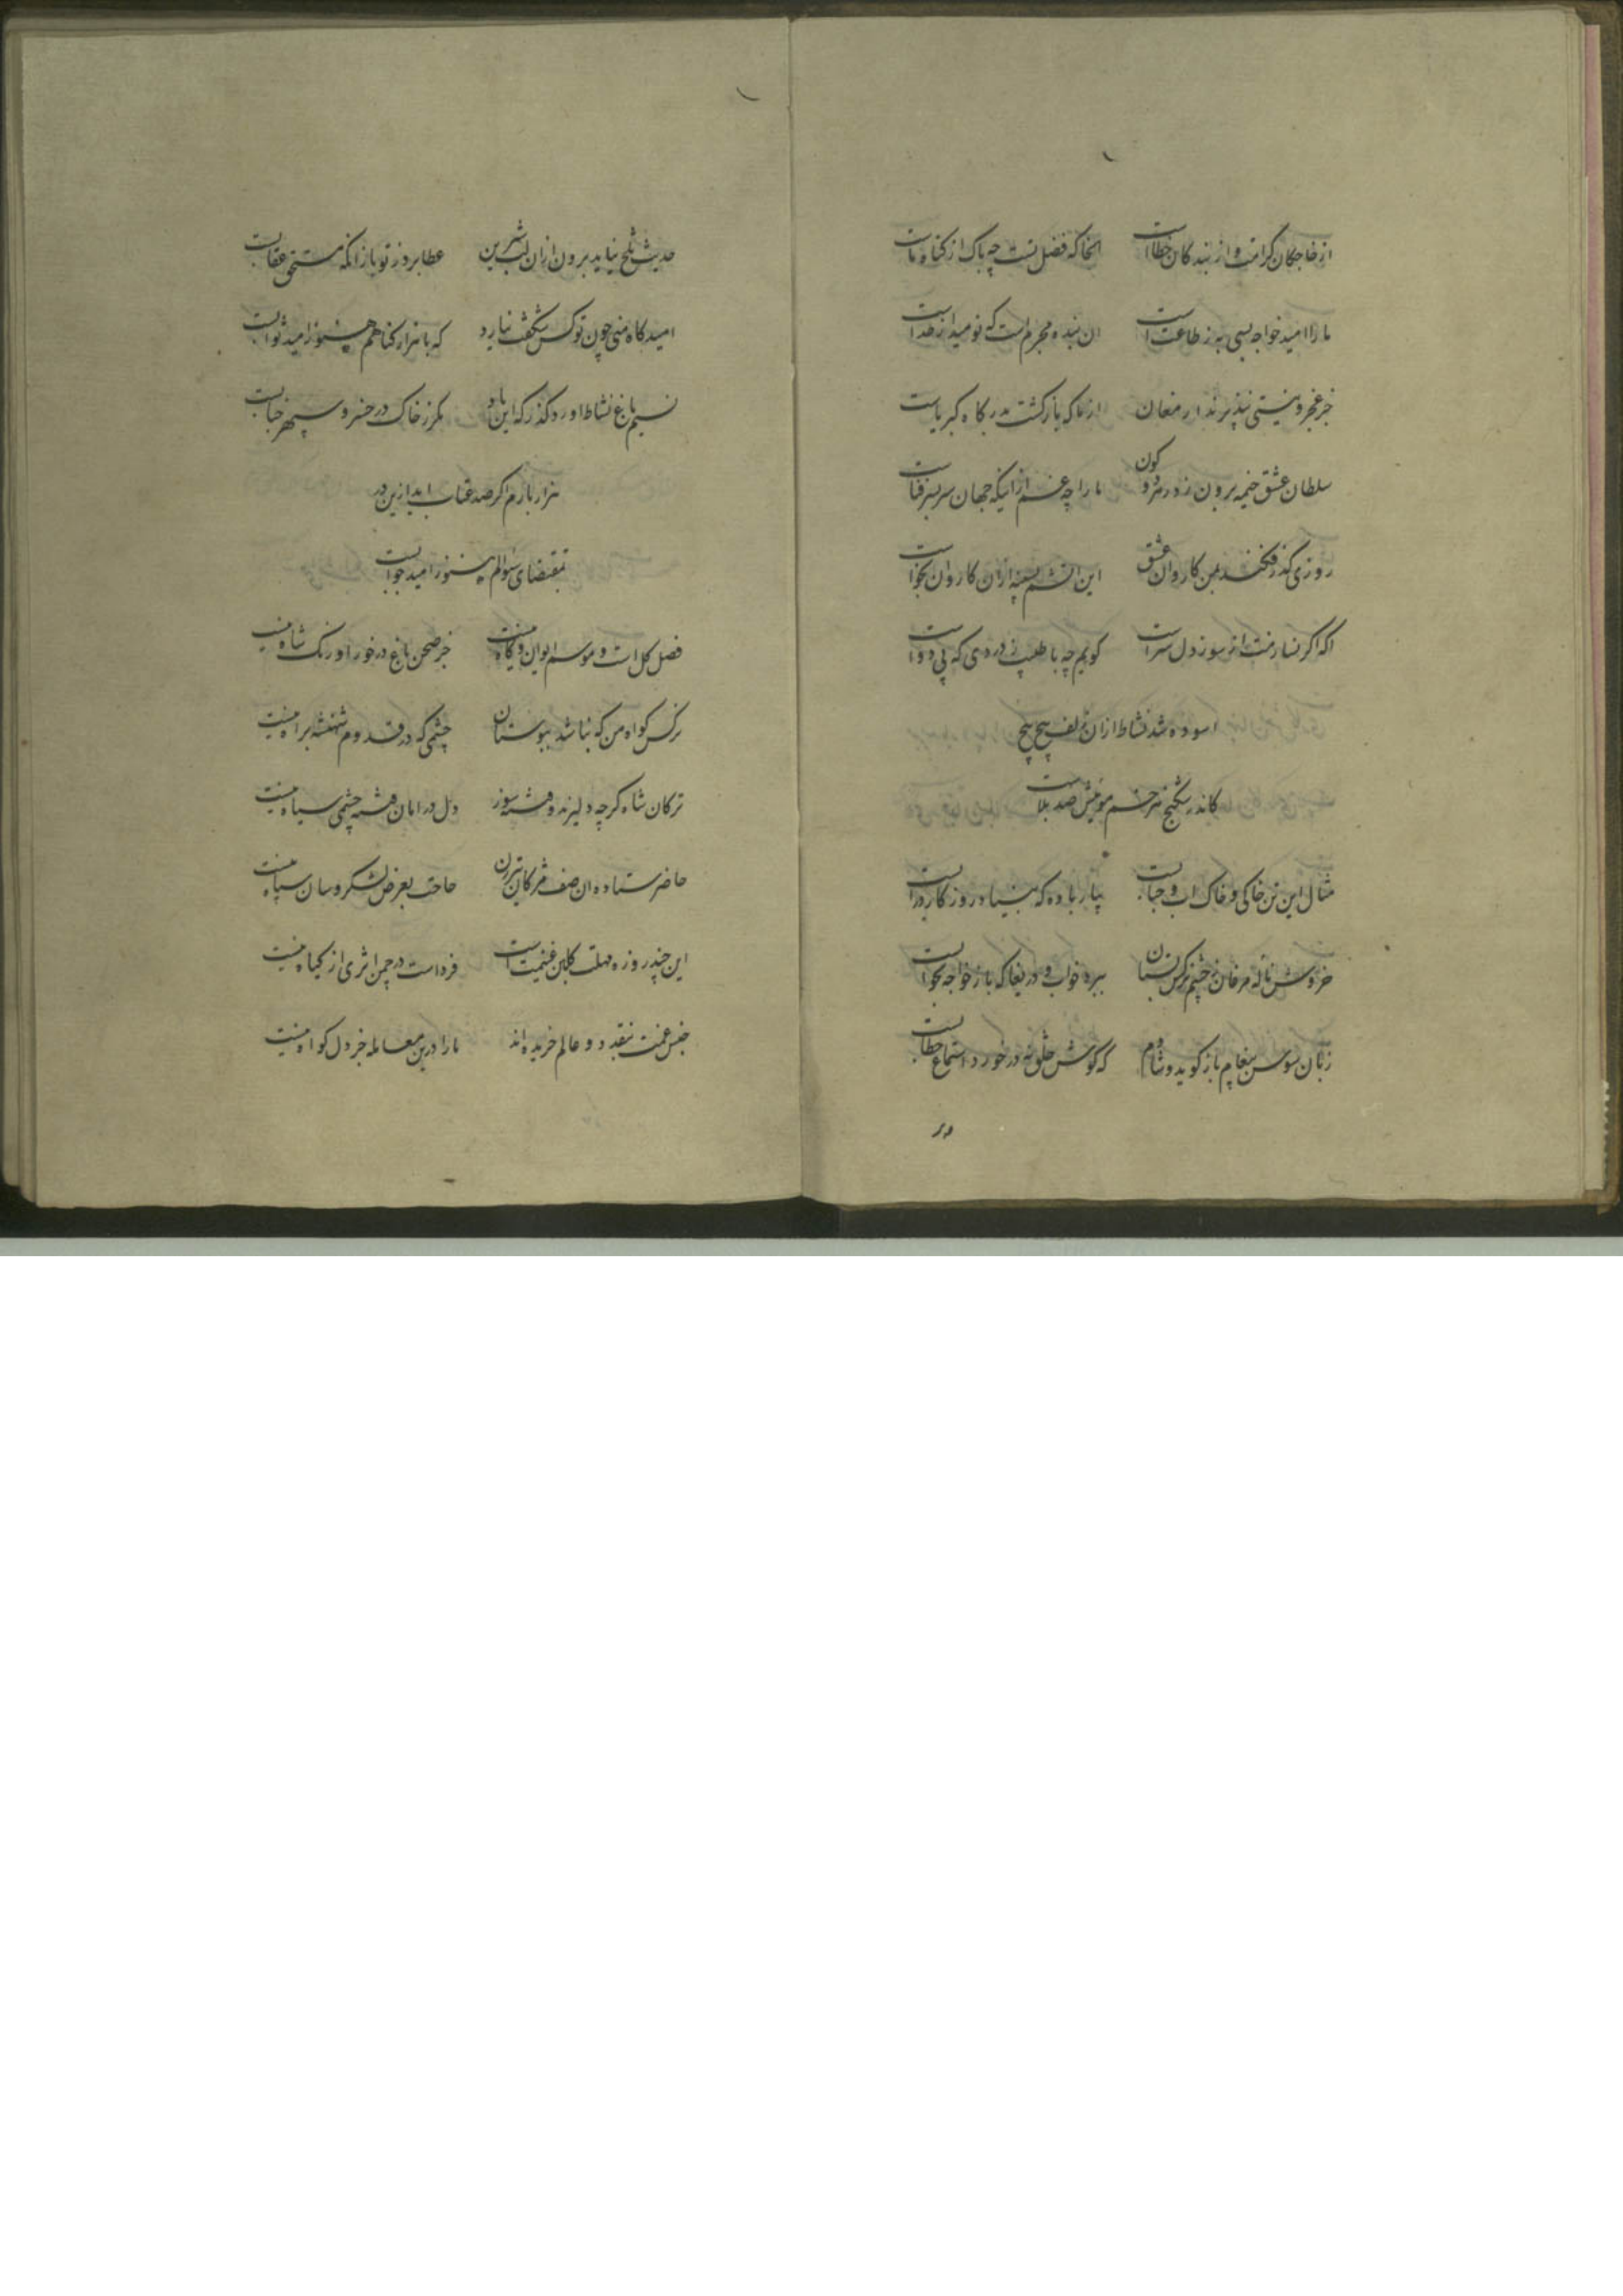 از خاجکان کرامت و از بندکان خطاست انجا که فضل تست چه باک از کناه ماست
ما را امید خواجه بسی به ز طاعت است ان بنده مجرم است که نومید از خداست
جز عجز و نیستی نپذیرند ارمغان از ما که بازکشت بدرکاه کبریاست
سلطان عشق خیمه برون زد ز هر دو کون ما را چه غم از اینکه جهان سربسر فناست
روزی کذر فکند بمن کاروان عشق این اتشم بسینه ازان کاروان بجاست
اکه اکر نسازمت از سوز دل سزاست کویم چه با طبیب ز دردی که بی دواست
اسوده شد نشاط ازان زلف پیچ پیچ
کاندر شکنج هر خم مویش صد بلاست
مثال این تن خاکی و خاک اب و حبابست بیار باده که بنیاد روزکار بر ابست
خروش ناله مرغان ز چشم نرکس بستان ببرد خواب و دریغا که باز خواجه بخوابست
زبان سوسن پیغام باز کوید و شادم که کوش خلق نه در خورد استماع خطابست
در
حدیث تلخ نیاید برون ازان لب شیرین عطا برد ز تو باز انکه مستحق عقابست
امیدکاه منی چون تو کس شکفت نیارد که با هزار کناهم هنوز امید ثوابست
نسیم باغ نشاط اورد کذر که این باد مکر ز خاک در خسرو سپهر جنابست
هزار بارم اکر صد عتاب اید ازین در
بمقتضای سوالم هنوز امید جوابست
فصل کل است و موسم ایوان و کاه نیست جز صحن باغ در خور اورنک شاه نیست
نرکس کواه من که نباشد ببوستان چشمی که در قدوم شهنشه براه نیست
ترکان شاه کرچه دلیرند و فتنه سوز دل در امان فتنه چشمی سیاه نیست
حاضر ستاده ان صف مژکان تیرزن حاجت بعرض لشکر و سان سپاه نیست
این چند روزه مهلت کلبن غنیمت است فرداست در چمن اثری از کیاه نیست
جنس غمت بنقد دو عالم خریده اند ما را درین معامله جز دل کواه نیست